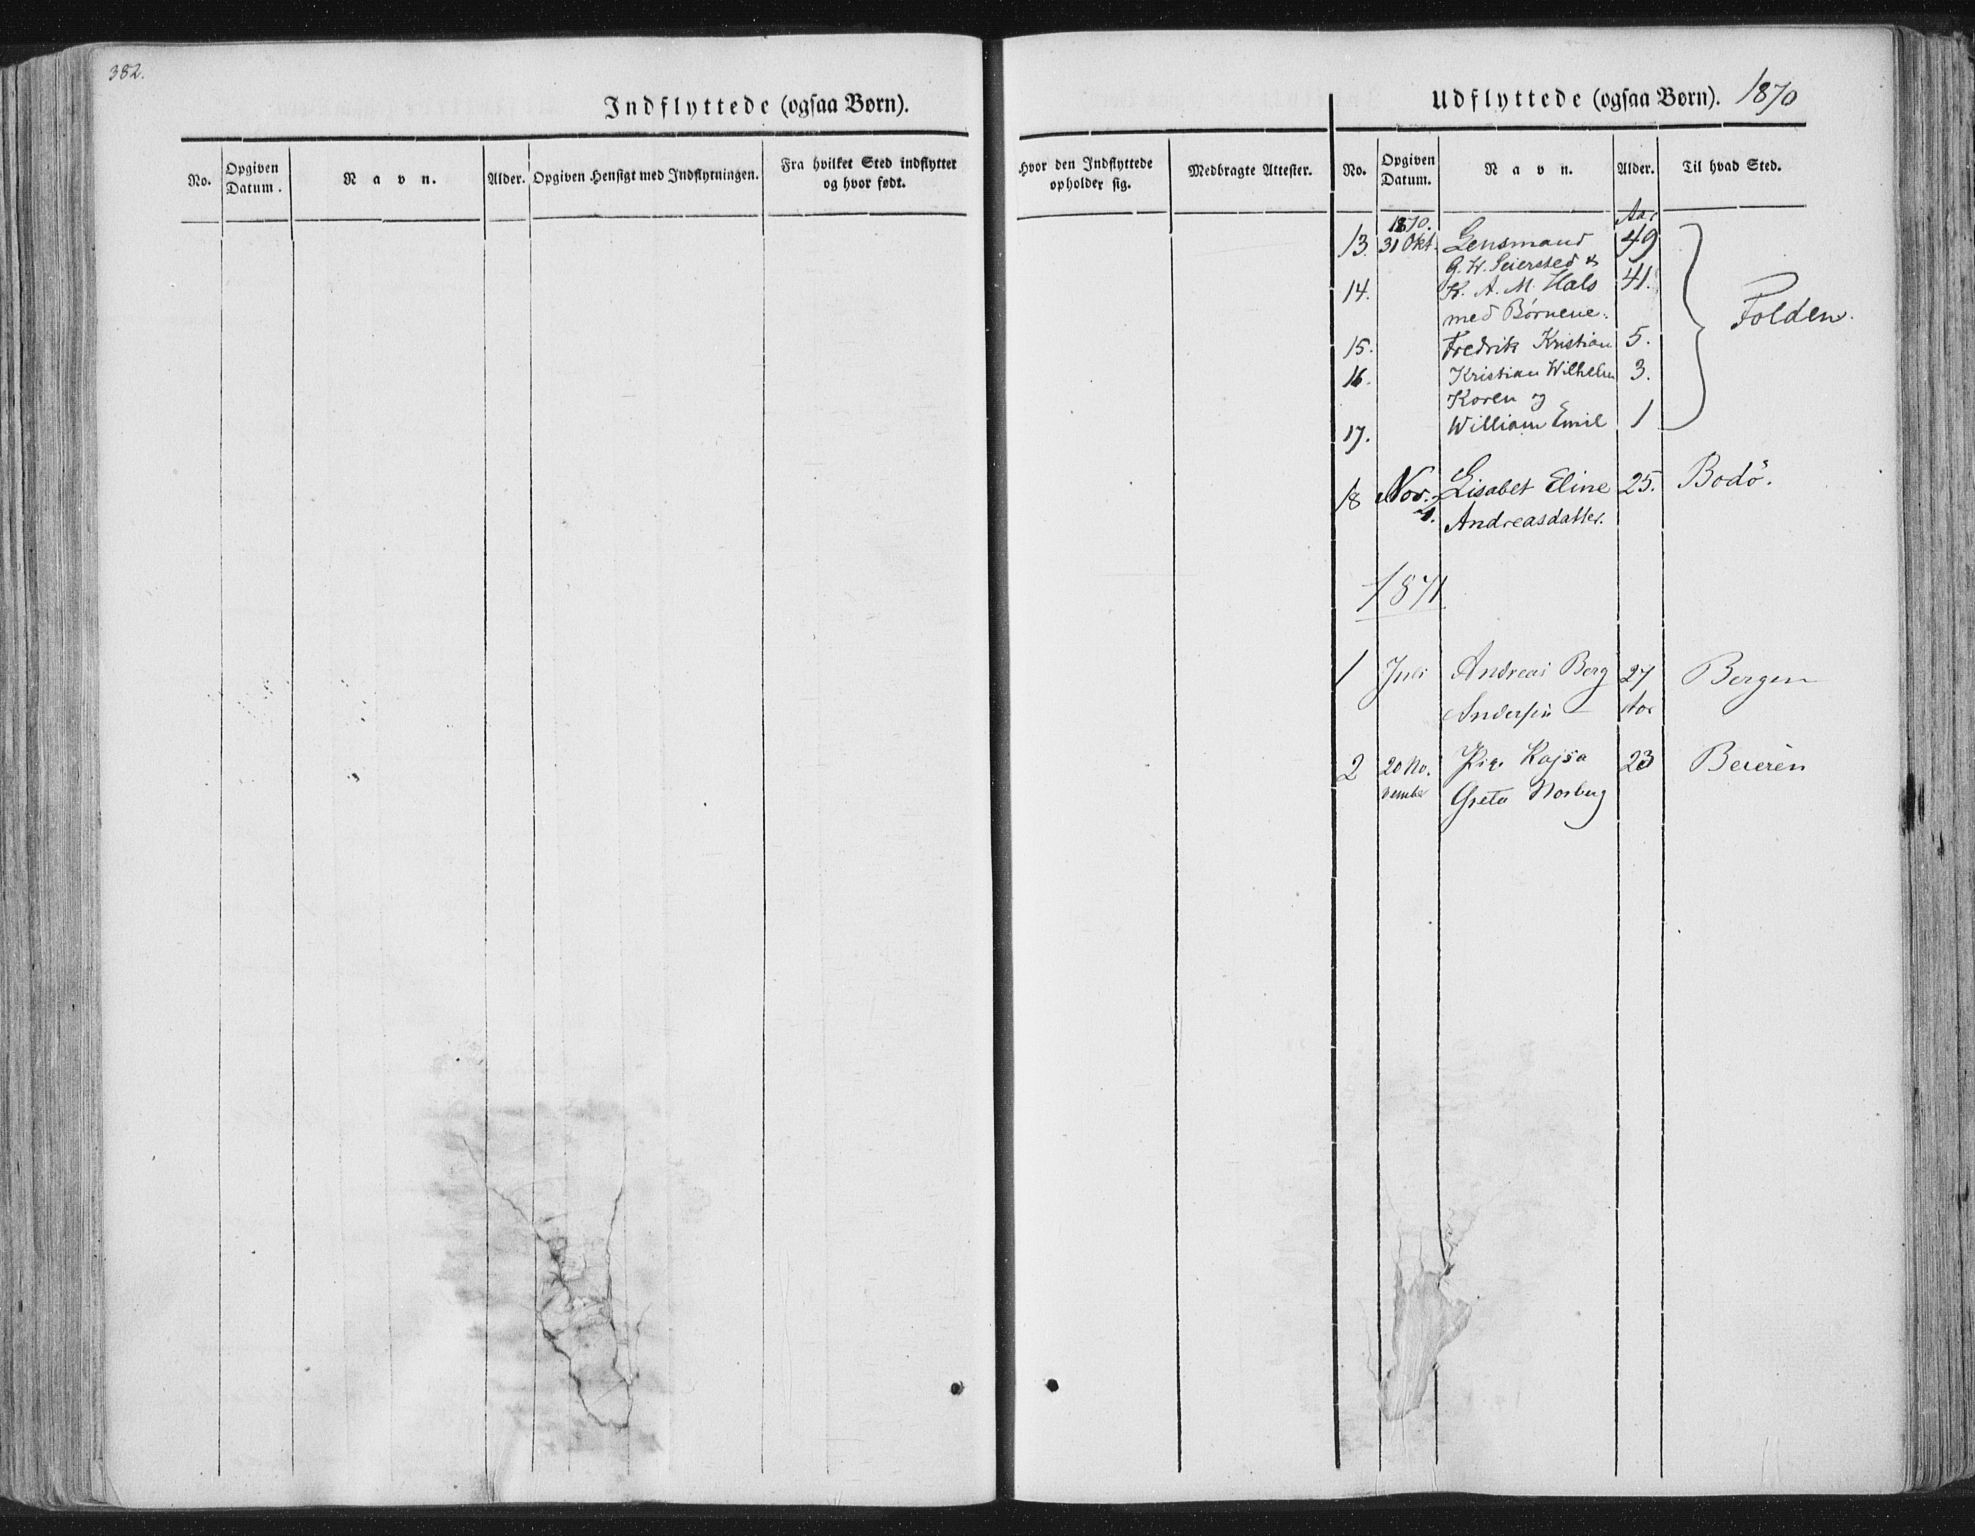 382.
Indflyttede (ogsaa Børn).
No.
Opgiven Datum.
Navn.
Alder.
Opgiven Hensigt med Indflytningen.
Fra hvilket Sted indflytter
og hvor født.
Hvor den Indflyttede
opholder sig.
Medbragte Attester.
Udflyttede (ogsaa Børn). 1870
No.
Opgiven Datum.
Navn.
Alder.
Til hvad Sted.
1870. Aar
13. 31 Okt. Lensmand 49
G. W. Seiersted &
14. K. A. M. Hals 41.
med Børnene: Folden.
15. Fredrik Kristian 5.
16. Kristian Wilhelm 3.
Koren og
17. William Emil 1
18 Nov. Lisabet Eline 25. Bodö.
4. Andreasdatter.
1871
1 Juli Andreas Berg 27 Bergen
Andersen Aar
2 20 No- Pige Kajsa 23 Beieren
vember Greta Norberg